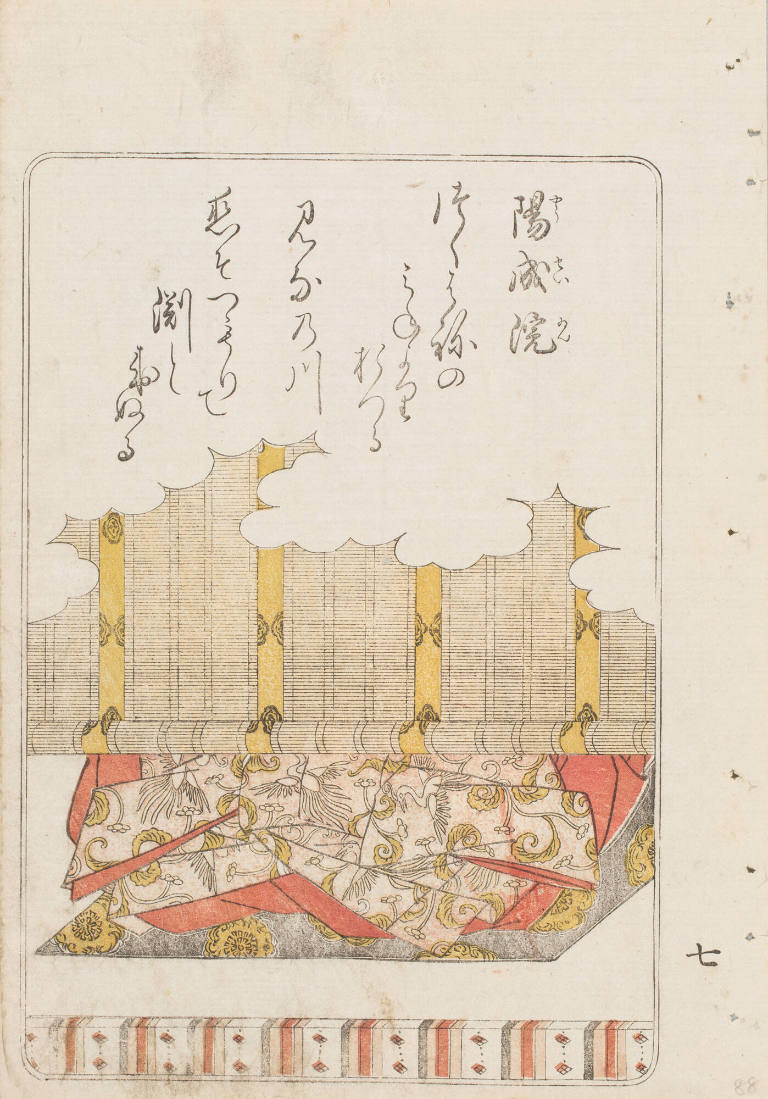 陽成院
やうせいゐん
つくはねの
みねより
おつる
みなの川
恋そつもりて
淵と
なりぬる
七
88